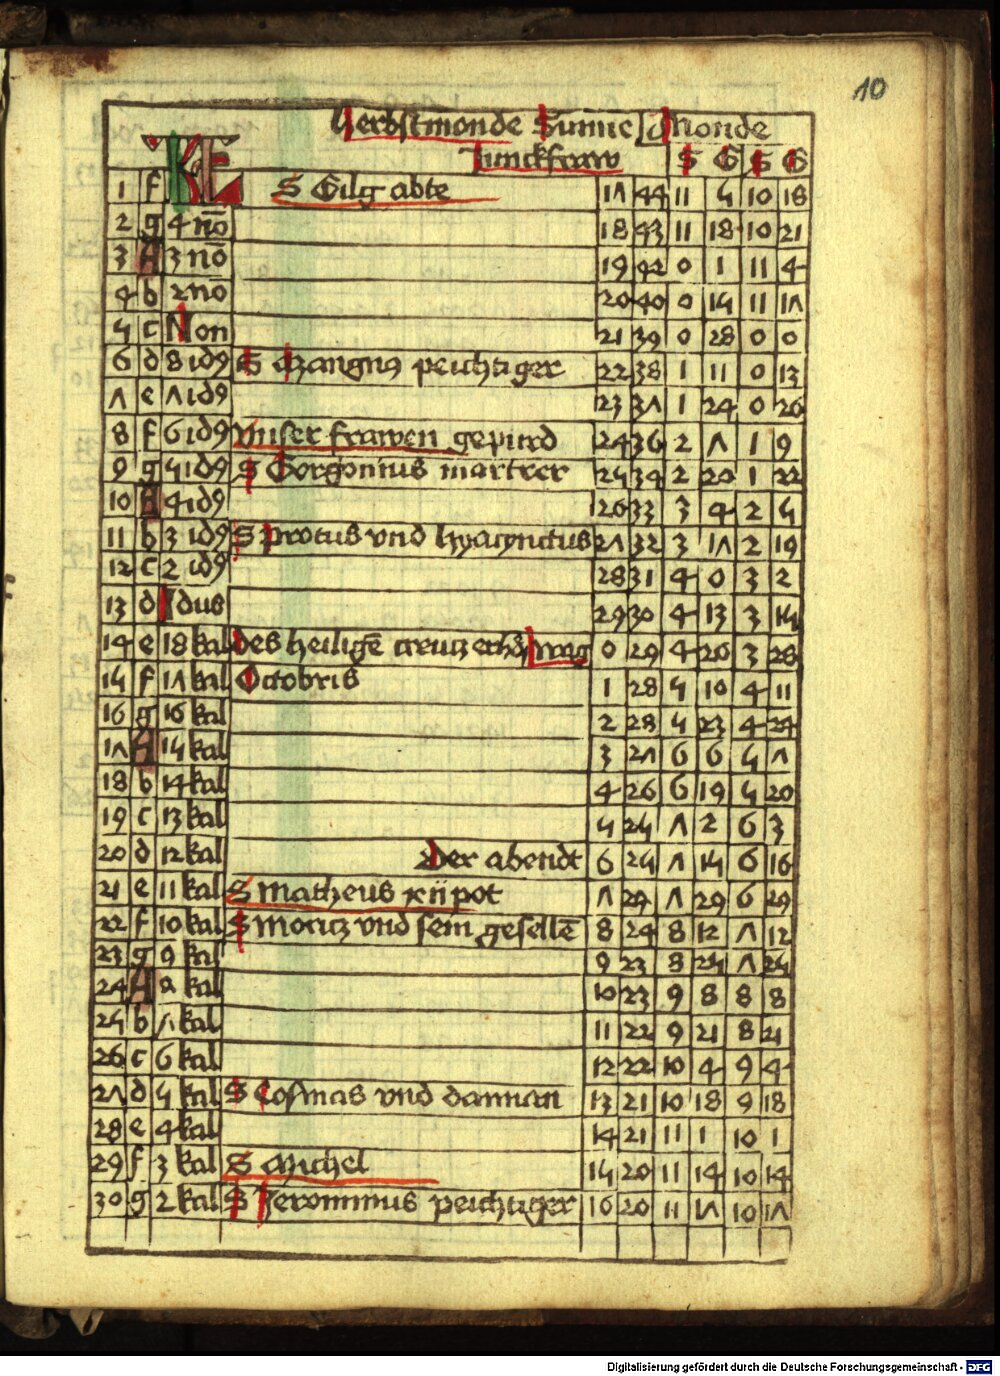 10
Herbstmonde Sunne Monde
Junckfraw S G S G
KL
1 f S Gilg abte 17 44 11 5 10 18
2 g 4 no 18 43 11 18 10 21
3 A 3 no 19 42 0 1 11 4
4 b 2 no 20 40 0 15 11 17
5 c Non 21 39 0 28 0 0
6 d 8 id9 S Mangnus peichtiger 22 38 1 11 0 13
7 e 7 id9 23 37 1 24 0 26
8 f 6 id9 Vnser frawen gepurd 24 36 2 7 1 9
9 g 5 id9 S Gorgonius martrer 25 34 2 20 1 22
10 A 4 id9 26 33 3 4 2 5
11 b 3 id9 S Protus vnd hyacynctus 27 32 3 17 2 19
12 c 2 id9 28 31 4 0 3 2
13 d Idus 29 30 4 13 3 15
14 e 18 kal Des heiligē creutz erhöhung 0 29 4 26 3 28
15 f 17 kal Octobris 1 28 5 10 4 11
16 g 16 kal 2 28 5 23 4 24
17 A 15 kal 3 27 6 6 5 7
18 b 14 kal 4 26 6 19 5 20
19 c 13 kal 5 25 7 2 6 3
20 d 12 kal Der abendt 6 25 7 15 6 16
21 e 11 kal S Matheus xii pot 7 24 7 29 6 29
22 f 10 kal S Moritz vnd sein gesellē 8 24 8 12 7 12
23 g 9 kal 9 23 8 25 7 25
24 A 8 kal 10 23 9 8 8 8
25 b 7 kal 11 22 9 21 8 21
26 c 6 kal 12 22 10 4 9 4
27 d 5 kal S Cosmas vnd damian 13 21 10 18 9 18
28 e 4 kal 14 21 11 1 10 1
29 f 3 kal S Michel 15 20 11 14 10 14
30 g 2 kal S Jeronimus peichtiger 16 20 11 17 10 17
Digitalisierung gefördert durch die Deutsche Forschungsgemeinschaft - DFG